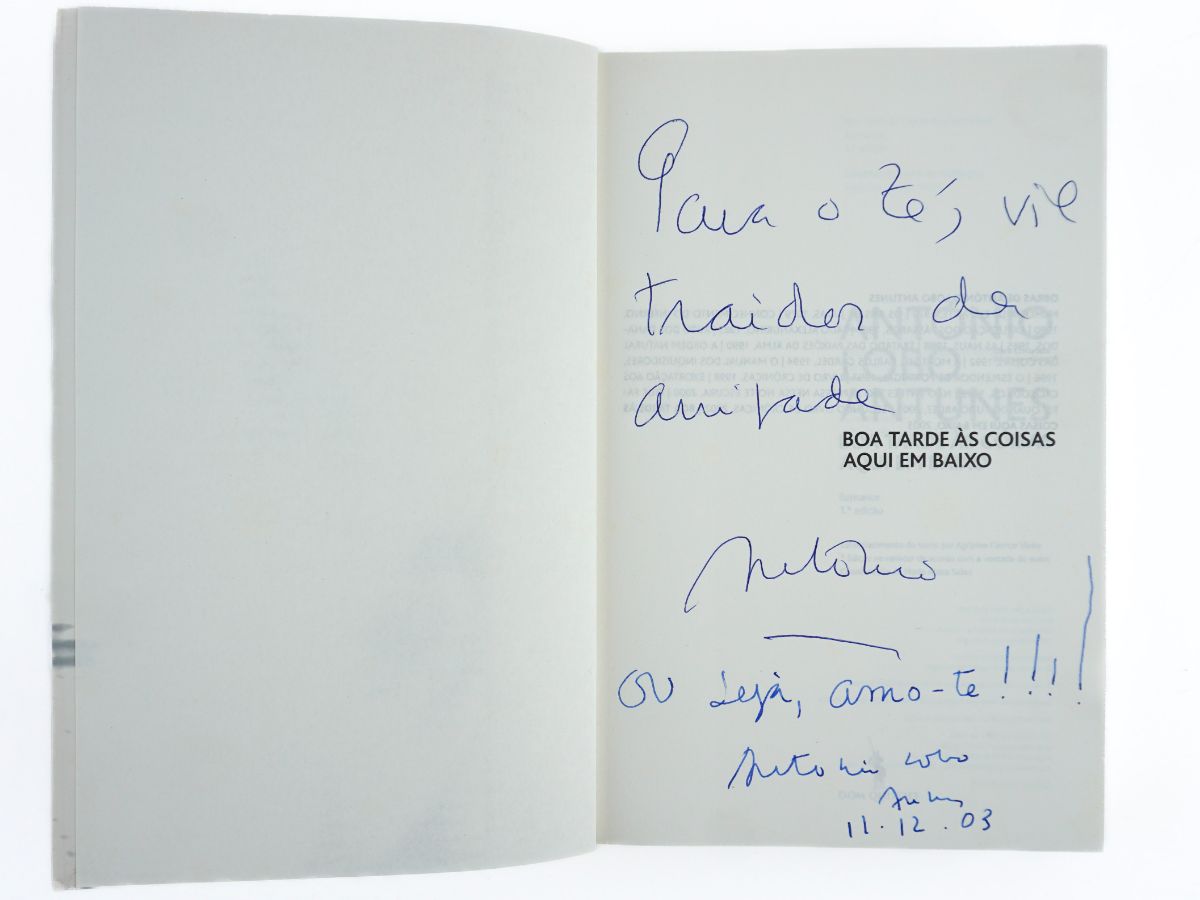 Para o Zé, vil
traidor da
amizade
BOA TARDE ÀS COISAS
AQUI EM BAIXO
António
ou seja, amo-te!!!!
António Lobo
Antunes
11.12.03